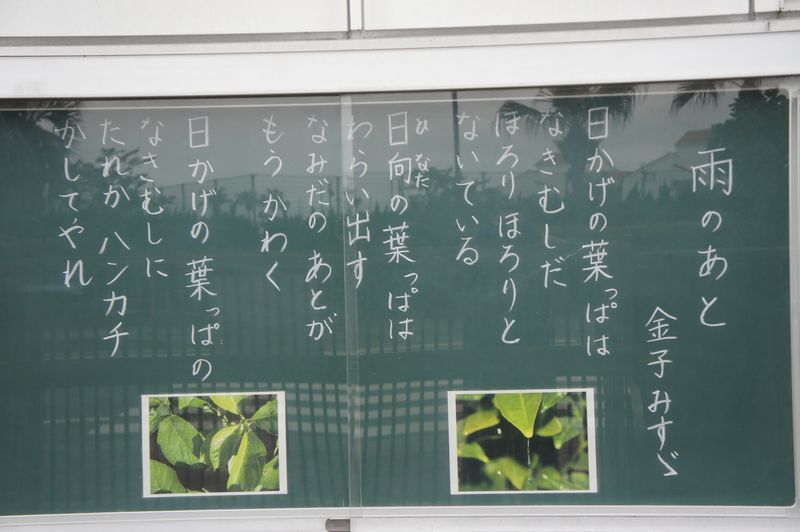 雨のあと
金子みすゞ
日かげの葉っぱは
なきむしだ
ほろりほろりと
ないている
日向の葉っぱは
ひなた
わらい出す
なみだのあとが
もうかわく
日かげの葉っぱの
なきむしに
たれかハンカチ
かしてやれ